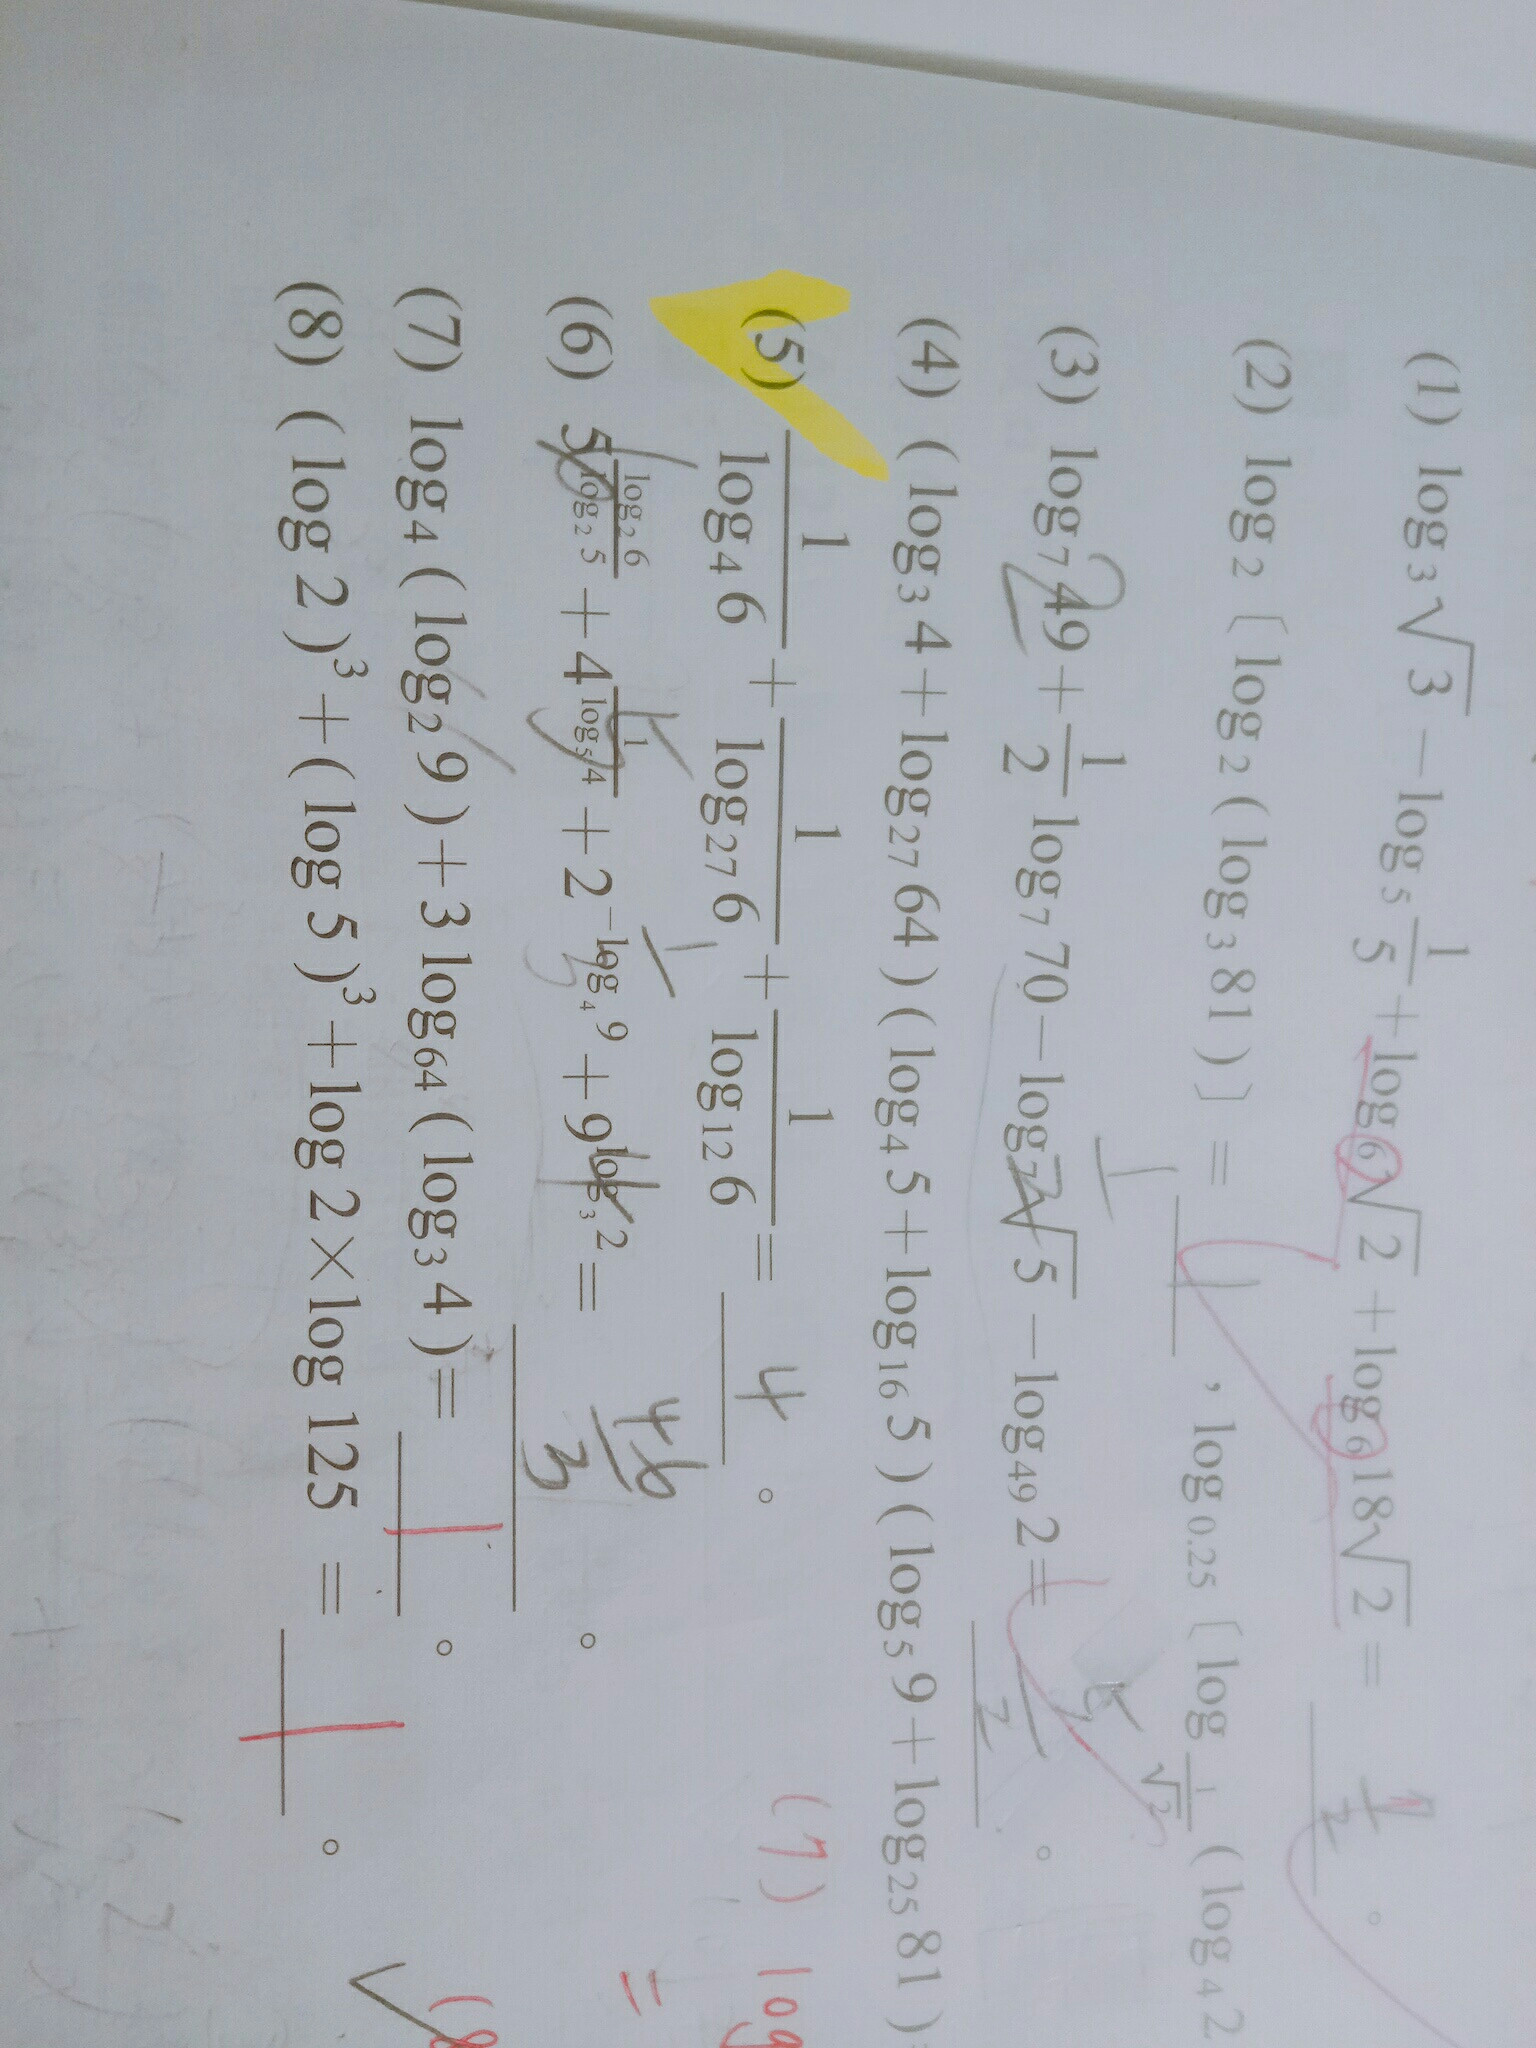 (1) log₃√3 − log₅ 1/5 + log₆√2 + log₆18√2 = 7/2 。
(2) log₂〔log₂(log₃81)〕= 1 , log₀.₂₅〔log 1/√2 (log₄2
(3) log₇49 + 1/2 log₇70 − log₇√5 − log₄₉2 = 5/2 。
(4) (log₃4 + log₂₇64)(log₄5 + log₁₆5)(log₅9 + log₂₅81) =
(5) 1/log₄6 + 1/log₂₇6 + 1/log₁₂6 = 4 。
(6) 5^(log₂6/log₂5) + 4^(1/log₅4) + 2^(−log₄9) + 9^(log₃2) = 46/3 。
(7) log₄(log₂9) + 3 log₆₄(log₃4) = 1 。
(8) (log 2)³ + (log 5)³ + log 2 × log 125 = 1 。
(7) log
=
(8